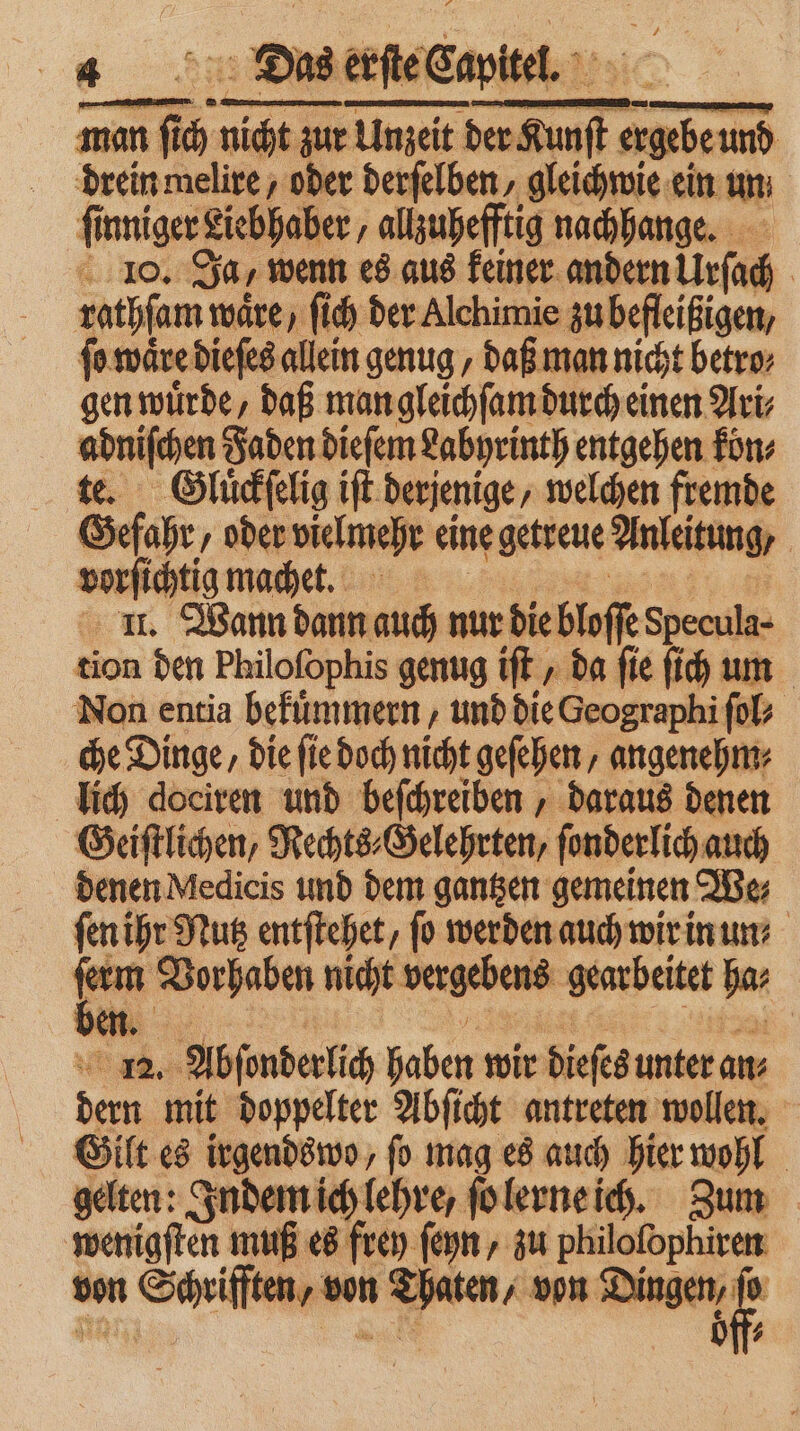 4 Das erſte Capitel.
man ſich nicht zur Unzeit der Kunſt ergebe und
drein melire, oder derſelben, gleichwie ein un⸗
ſinniger Liebhaber, allzuhefftig nachhange.
10. Ja, wenn es aus keiner andern Urſach
rathſam waͤre, ſich der Alchimie zu befleißigen,
ſo waͤre dieſes allein genug, daß man nicht betro⸗
gen wuͤrde, daß man gleichſam durch einen Ari⸗
adniſchen Faden dieſem Labyrinth entgehen koͤn⸗
te. Gluͤckſelig iſt derjenige, welchen fremde
Gefahr, oder vielmehr eine getreue Anleitung,
vorſichtig machet.
11. Wann dann auch nur die bloſſe Specula-
tion den Philoſophis genug iſt, da ſie ſich um
Non entia bekuͤmmern, und die Geographi ſol⸗
che Dinge, die ſie doch nicht geſehen, angenehm⸗
lich dociren und beſchreiben, daraus denen
Geiſtlichen, Rechts⸗Gelehrten, ſonderlich auch
denen Medicis und dem gantzen gemeinen We⸗
ſen ihr Nutz entſtehet, ſo werden auch wir in un⸗
ſerm Vorhaben nicht vergebens gearbeitet ha⸗
ben.
12. Abſonderlich haben wir dieſes unter an⸗
dern mit doppelter Abſicht antreten wollen.
Gilt es irgendswo, ſo mag es auch hier wohl
gelten: Indem ich lehre, ſo lerne ich. Zum
wenigſten muß es frey ſeyn, zu philoſophiren
von Schrifften, von Thaten, von Dingen, ſo
oͤff⸗